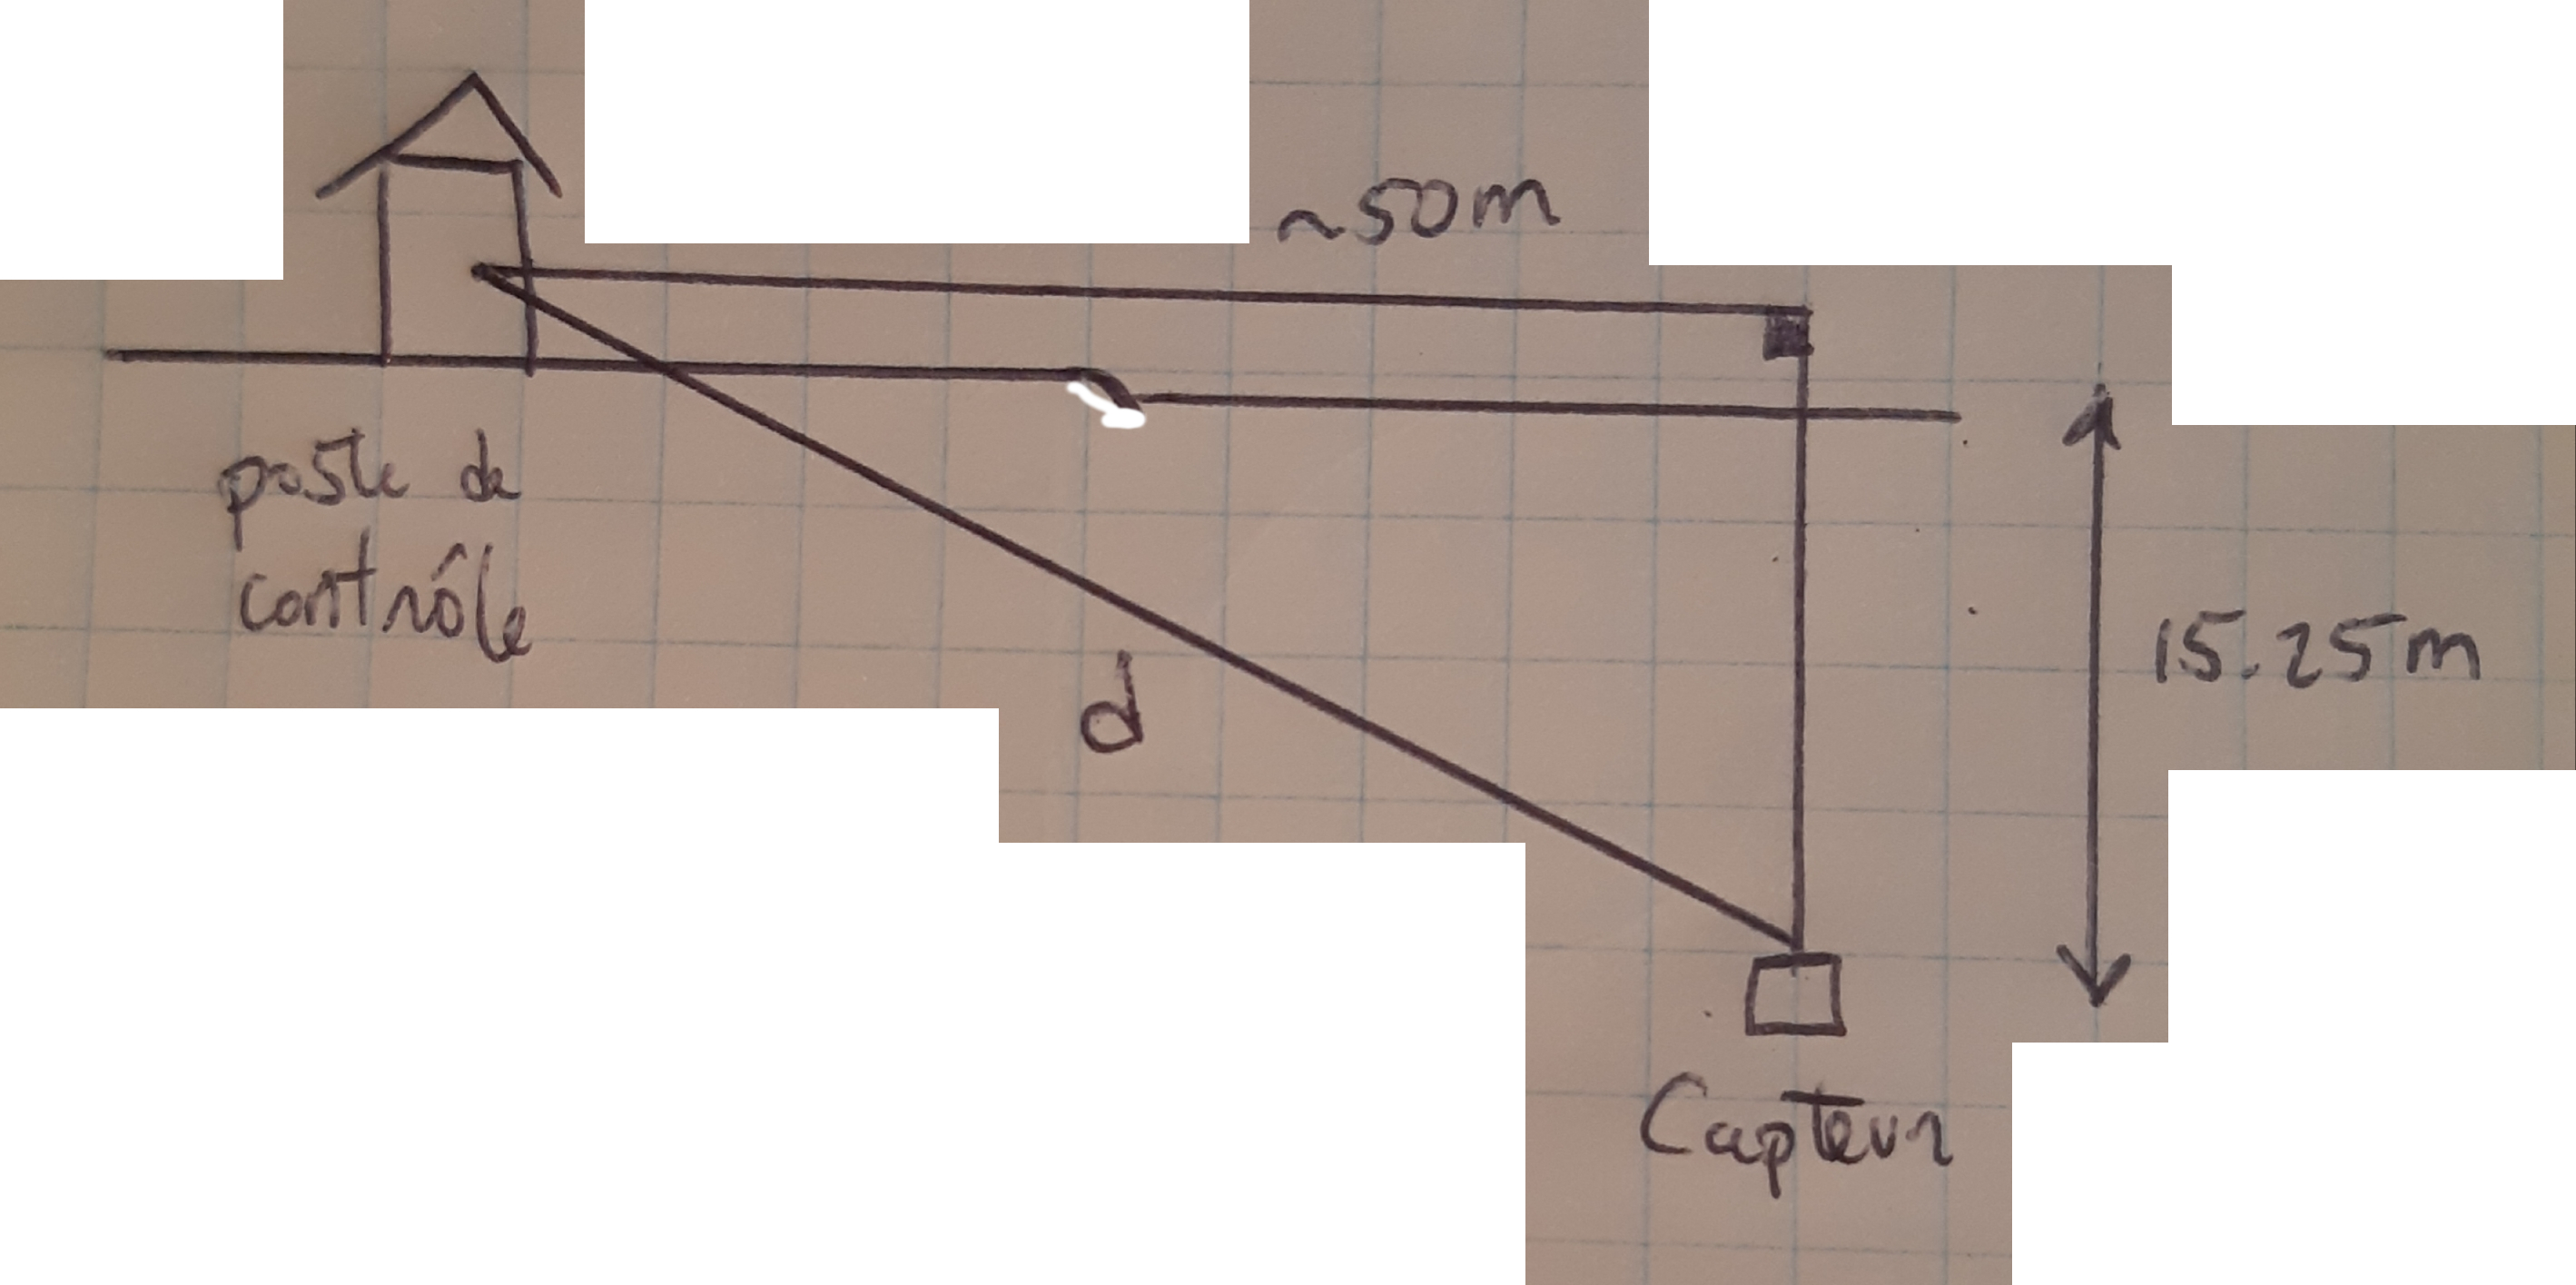 ~50m
poste de
contrôle
15.25m
d
Capteur